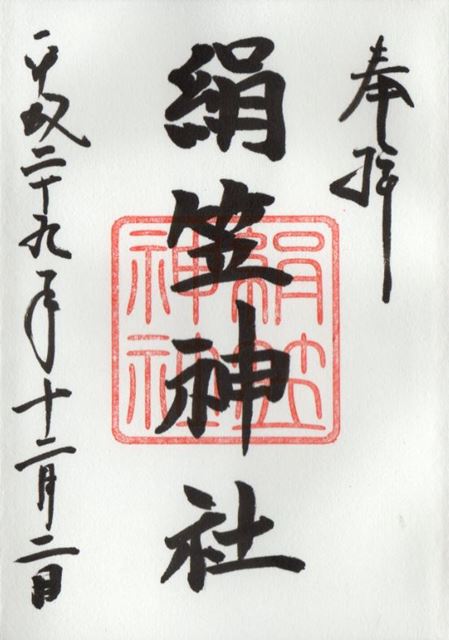 奉拝
絹笠神社
絹笠神社
平成二十九年十二月二日